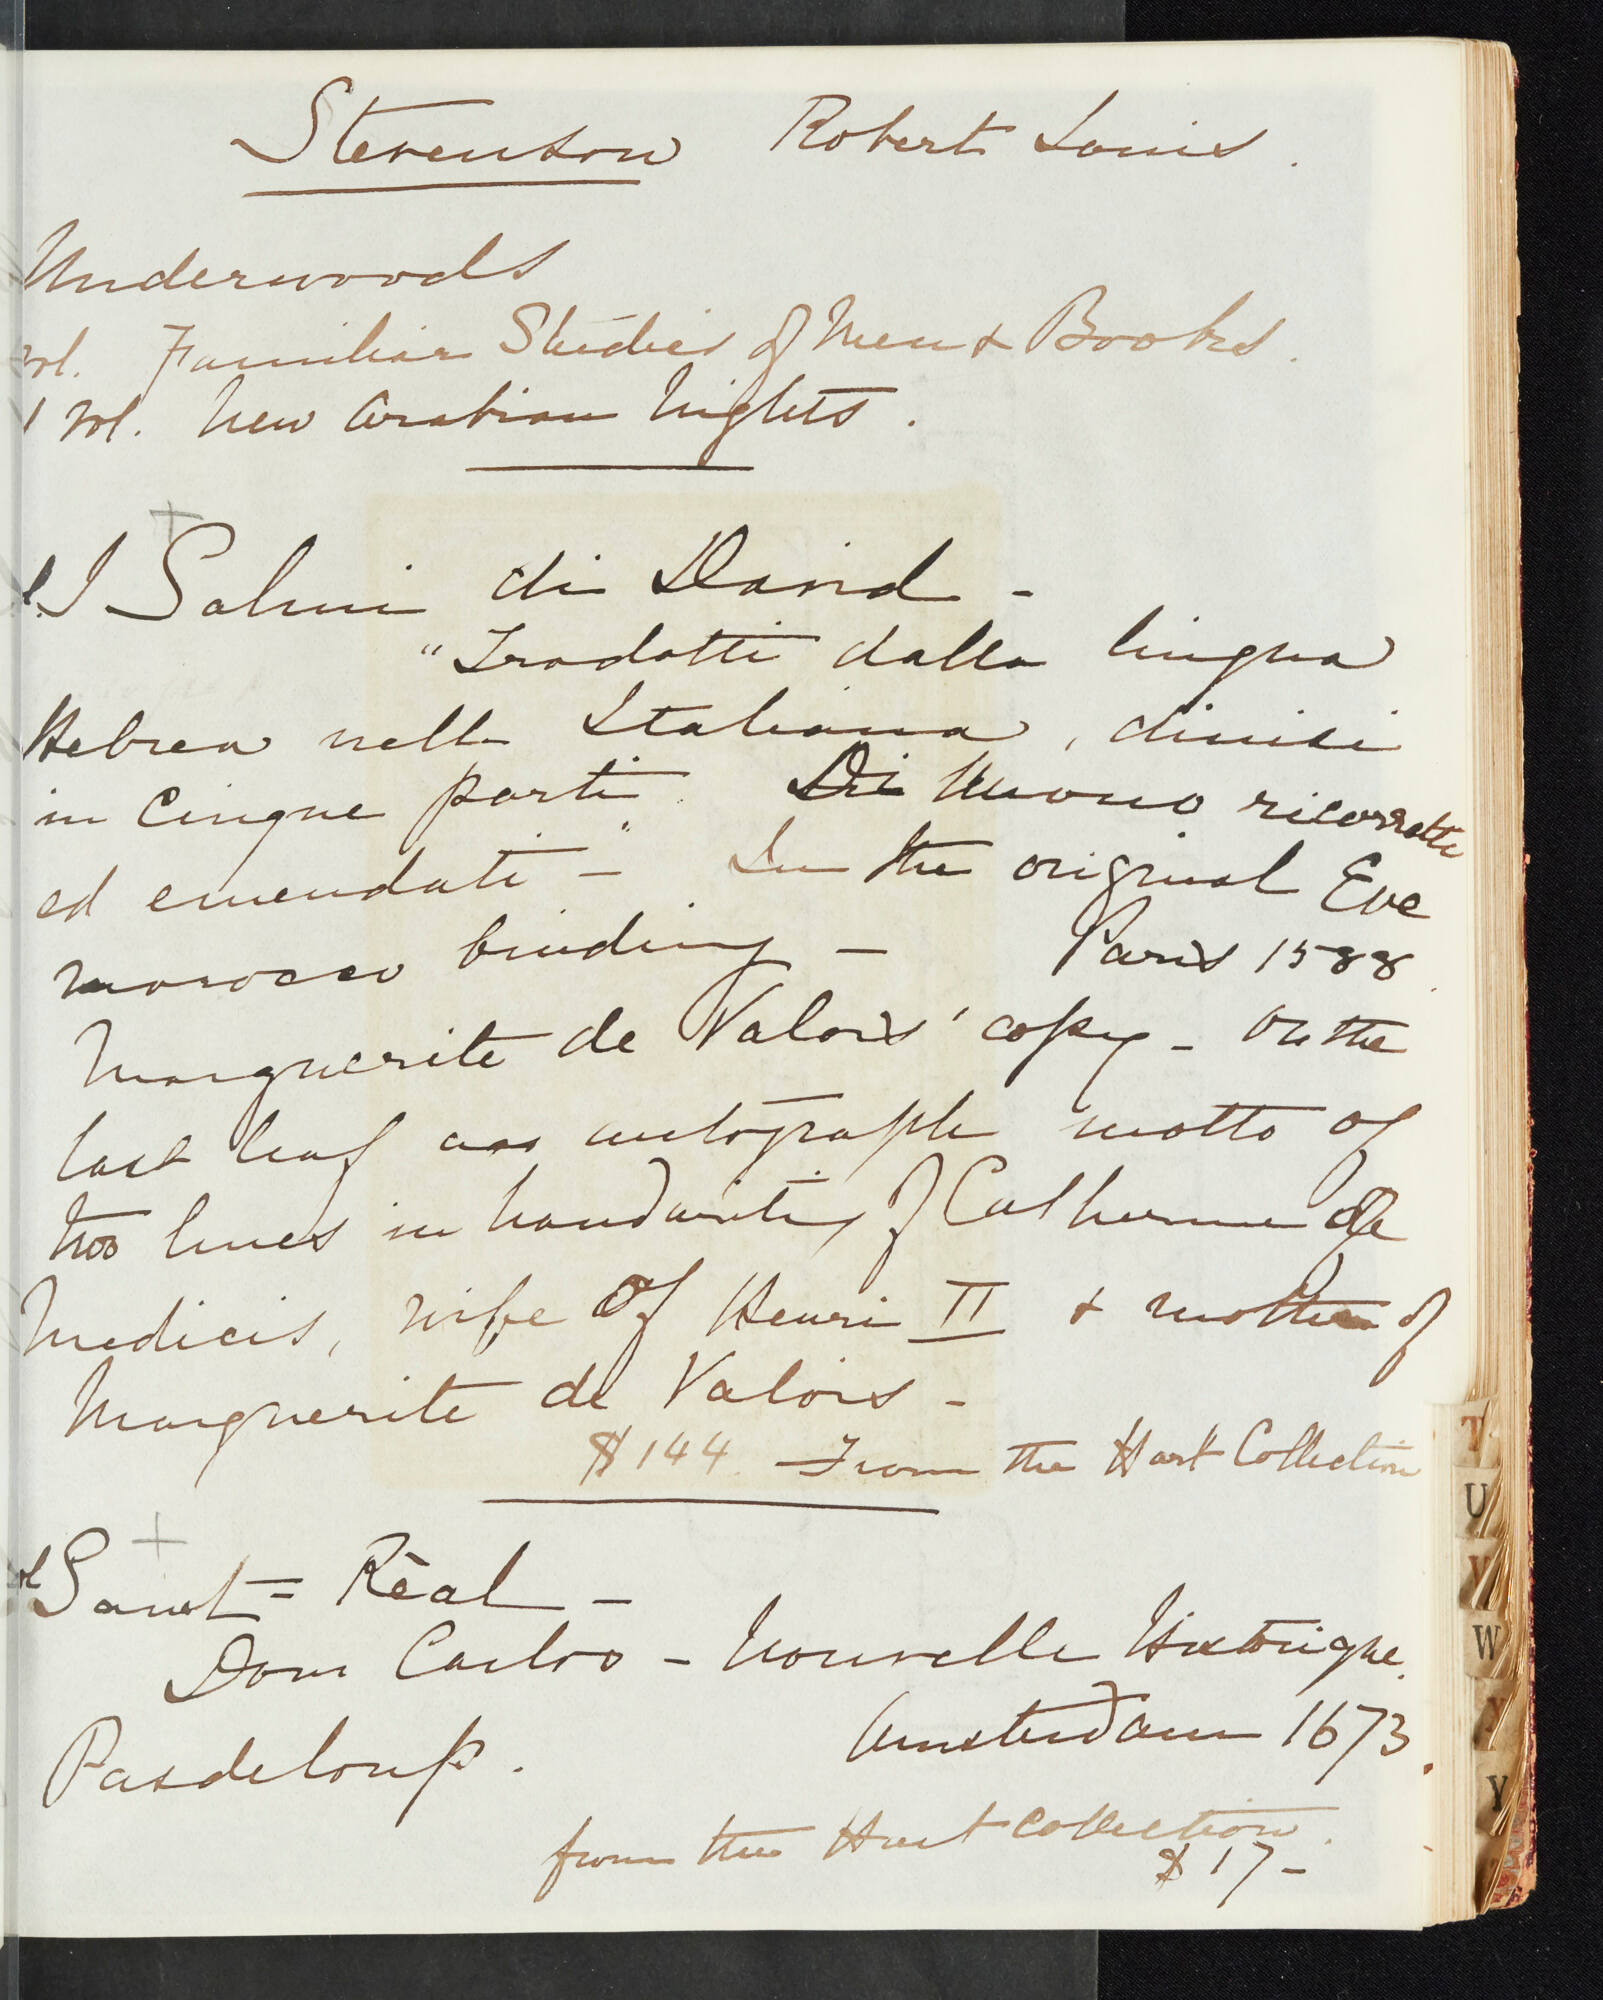 Stevenson Robert Louis.
Underwoods
vol. Familiar Studies of Men & Books.
1 vol. New Arabian Nights.
I Salmi di David -
"Tradotti dalla lingua
Hebrea nella Italiana, divisi
in Cinque parti. Di Nuovo ricorretti
ed emendati" - In the original Eve
morocco binding - Paris 1588.
Marguerite de Valois' copy - On the
last leaf an autograph motto of
two lines in handwriting of Catherine de
Medicis, wife of Henri II & mother of
Marguerite de Valois -
$144. From the Hart Collection
Saint = Réal -
Dom Carlos - Nouvelle Historique.
Amsterdam 1673.
Pasdeloup.
from the Hart Collection.
$17-
T
U
V
W
X
Y